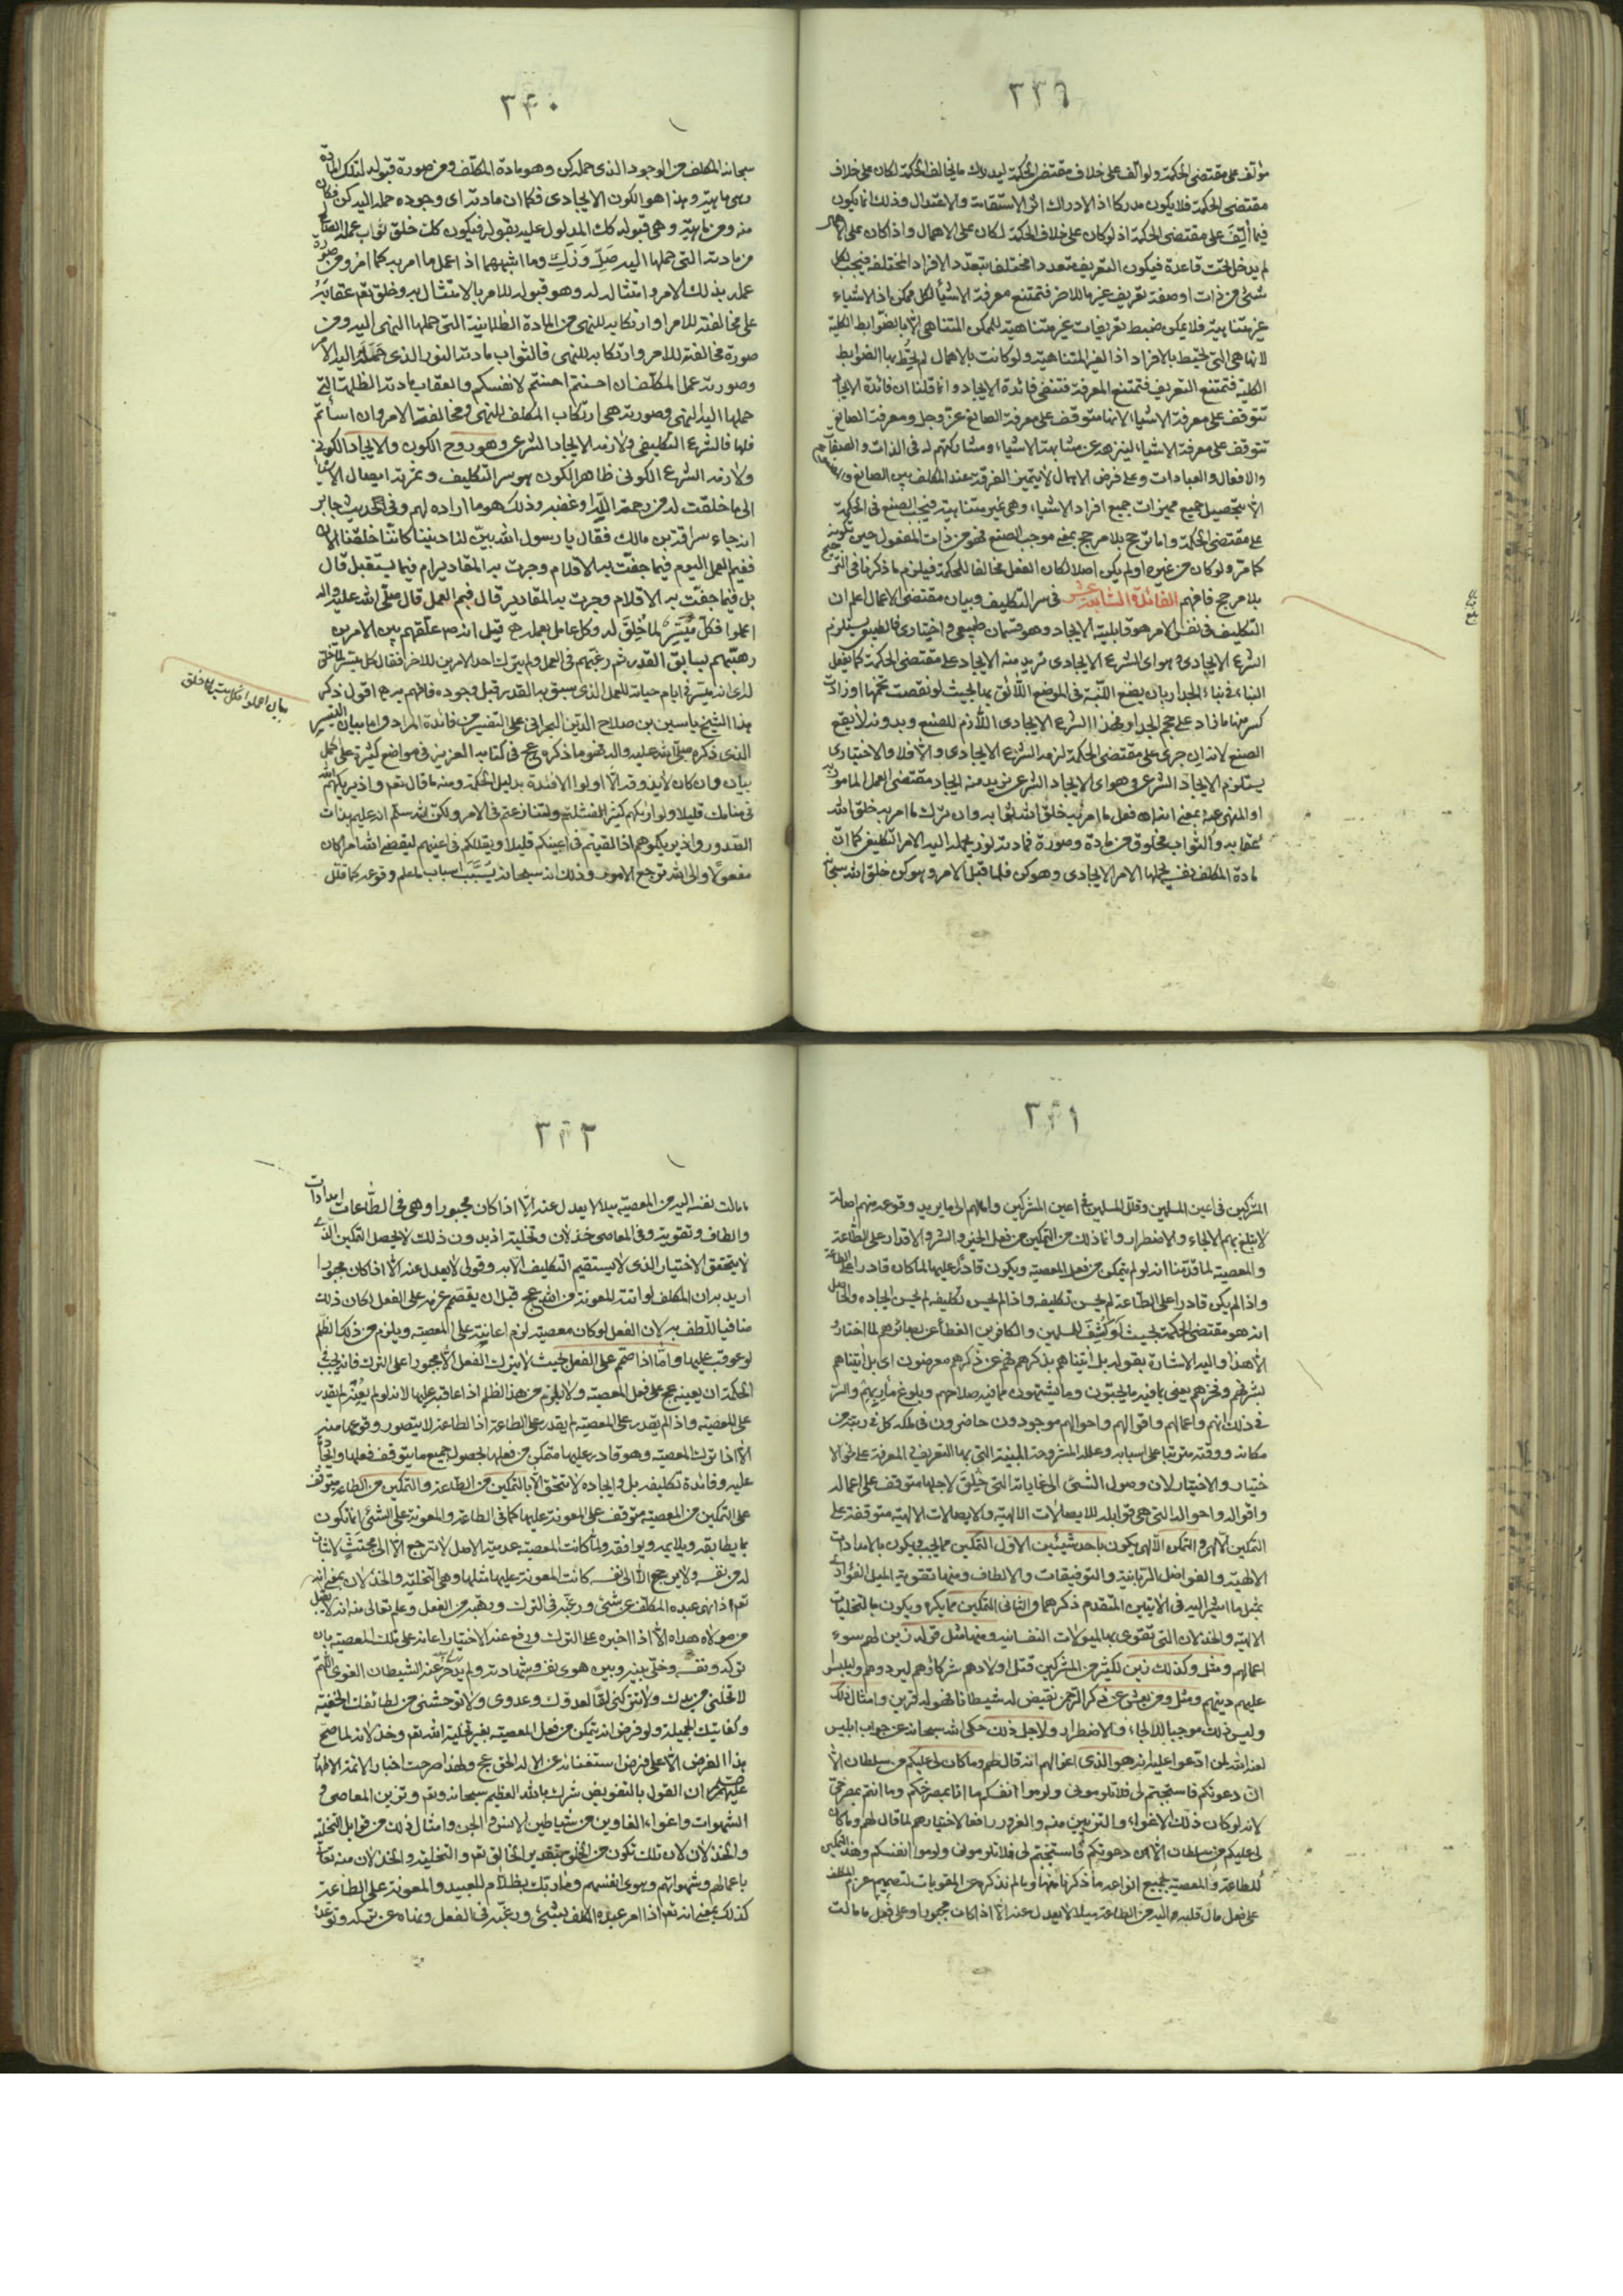 ٣٣٩
مؤلف على مقتضى الحكمة ولو الف على خلاف مقتضى الحكمة ليدرك ما يخالف الحكمة لكان على خلاف
مقتضى الحكمة فلا يكون مدركا اذ الادراك اثر الاستقامة والاعتدال وذلك انما يكون
فيما أُلِّفَ على مقتضى الحكمة اذ لو كان على خلاف الحكمة لكان على الاهمال واذا كان على الاهمال
لم يدخل تحت قاعدة فيكون التعريف متعددا مختلفا بتعدد الافراد المختلفة فيجب لكل
شئ من ذات او صفة تعريف غير ما للاخر فتمتنع معرفة الاشياء لكل ممكن اذ الاشياء
غير متناهية فلا يمكن ضبط تعريفات غير متناهية للممكن المتناهى الا بالضوابط الكلية
لانها هى التى تحيط بالافراد الغير المتناهية ولو كانت بالاهمال لم تُحِط بها الضوابط
الكلية فتمتنع التعريف فتمتنع المعرفة فتنتفى فائدة الايجاد وانما قلنا ان فائدة الايجاد
تتوقف على معرفة الاشياء لانها متوقف على معرفة الصانع عز وجل ومعرفة الصانع
تتوقف على معرفة الاشياء لينزهه عن مشابهة الاشياء ومشاركتهم له فى الذات والصفات
والافعال والعبادات وعلى فرض الاهمال لا يتميز الفرق عند المكلف بين الصانع
الا بتحصيل جميع مميزات جميع افراد الاشياء وهى غير متناهية فيجب الصنع فى الحكمة
على مقتضى الحكمة واما ترجح بلا مرجح بمعنى موجب الصنع فهو من ذات المفعول حين تكوينه
كما مر ولو كان من غيره او لم يكن اصلا لكان الفعل مخالفا للحكمة فيلزم ما ذكرنا فى الترجيح
بلا مرجح فافهم الفائدة السابعة عشر فى سر التكليف وبيان مقتضى الاعمال اعلم ان
التكليف فى نفس الامر هو قابلية الايجاد وهو قسمان طبيعى واختيارى فالطبيعى يستلزم
الشرع الايجادى وهو اى الشرع الايجادى نريد منه الايجاد على مقتضى الحكمة كما يفعل
البناء فى بناء الجدار بان يضع اللبنة فى الموضع اللائق بها بحيث لو نقصت حجمها او زادت
كسر منها ما زاد على حجم الجدار فهذا الشرع الايجادى اللازم للصنع وبدونه لا يقع
الصنع لانه ان جرى على مقتضى الحكمة لزمه الشرع الايجادى والا فلا والاختيارى
يستلزم الايجاد الشرعى وهو اى الايجاد الشرعى نريد منه ايجاد مقتضى العمل المامور به
او المنهى عنه بمعنى انه ان فعل ما امر به خلق الله ثوابه وان ترك ما امر به خلق الله
عقابه والثواب مخلوق من مادة وصورة فمادته نور يحمله اليه الامر التكليفى كما ان
مادة المكلف نفسه يحملها الامر الايجادى وهو كن فلما قبل الامر وهو كن خلق الله سبحانه
٣٤٠
سبحانه المكلف من الوجود الذى حمله كن وهو مادة المكلف ومن صورة قبوله لتلك المادة
وهى ماهيته وهذا هو الكون الايجادى فكما ان مادته اى وجوده حمله اليه كن فكان
منه ومن ماهيته وهى قبوله كن المدلول عليه بقوله فيكون كك خلق ثواب عمله الصالح
من مادته التى حملها اليه صَلِّ وَزَكِّ وما اشبههما اذ اعمل ما امر به كما امر ومن صورة
عمله بذلك الامر وامتثاله له وهو قبوله للامر بالامتثال به وخلق تعم عقابَهُ
على مخالفته للامر وارتكابه للنهى من المادة الظلمانية التى حملها النهى اليه ومن
صورة مخالفته للامر وارتكابه للنهى فالثواب مادته النور الذى حَمَلَهُ اليه الامر
وصورته عمل المكلف ان احسنتم احسنتم لانفسكم والعقاب مادته الظلمة التى
حملها اليه النهى وصورته هى ارتكاب المكلف للنهى ومخالفته الامر وان اسأتم
فلها فالشرع التكليفى ولازمه الايجاد الشرعى وهو روح الكون والايجاد الكونى
ولازمه الشرع الكونى ظاهر الكون هو سر التكليف وثمرته ايصال الاشياء
الى ما خلقت له من رحمة الله او غضبه وذلك هو ما اراده لهم وفى الحديث جابر
انه جاء سراقة بن مالك فقال يا رسول الله بين لنا ديننا كاننا خلقنا الان
ففيم العمل اليوم فيما جفت به الاقلام وجرت به المقادير ام فيما يستقبل قال
بل فيما جفت به الاقلام وجرت به المقادير قال ففيم العمل قال صلى الله عليه واله
اعملوا فكل مُيَسَّر لما خُلِقَ له وكل عامل بعمله قيل انه ص علقهم بين الامرين
رهبهم بسابق القدر ثم رغبهم فى العمل ولم يترك احد الامرين للاخر فقال كل ميسر لما خلق
له اى انه ميسر فى ايام حياته للعمل الذى سبق به القدر قبل وجوده فافهم اقول ذكر
هذا الشيخ ياسين بن صلاح الدين البحرانى على التفسير من فائدة المراد واما بيان التيسير
الذى ذكره صلى الله عليه واله فهو ما ذكره عج فى كتابه العزيز فى مواضع كثيرة على اكمل
بيان وان كان لا يذوقه الا اولوا الافئدة بدليل الحكمة ومنه ما قال تعم واذ يريكهم الله
فى منامك قليلا ولو اريكهم كثيرا لفشلتم ولتنازعتم فى الامر ولكن الله سلم انه عليم بذات
الصدور واذ يريكموهم اذ التقيتم فى اعينكم قليلا ويقللكم فى اعينهم ليقضى الله امرا كان
مفعولا والى الله ترجع الامور وذلك انه سبحانه يُسَبِّبُ اسباب ما علم وقوعه كما قلل
بيان اعملوا فكل ميسر لما خلق
٣٤١
المشركين فى اعين المسلمين وقلل المسلمين فى اعين المشركين وامالهم الى ما يريد وقوعه منهم امالة
لا تبلغ بهم الالجاء والاضطرار وانما ذلك من التمكين من فعل الخير والشر والاقدار على الطاعة
والمعصية لما قدمنا انه لو لم يتمكن من فعل المعصية ويكون قادرا عليها لما كان قادرا على الطاعة
واذا لم يكن قادرا على الطاعة لم يحسن تكليفه واذا لم يحسن تكليفه لم يحسن ايجاده والحاصل
انه هو مقتضى الحكمة بحيث لو كُشِفَ للمسلمين والكافرين الغطاء عن بصائرهم لما اختاروا
الا هذا واليه الاشارة بقوله بل اتيناهم بذكرهم فهم عن ذكرهم معرضون اى بل اتيناهم
بشرفهم وفخرهم يعنى بما فيه ما يحبون وما يشتهون مما فيه صلاحهم وبلوغ مأربهم والسر
فى ذلك انهم واعمالهم واقوالهم واحوالهم موجودون حاضرون فى ملكه كل فى رتبته من
مكانه ووقته مترتبا على اسبابه وعلله المشروحة المبينة التى بها التعريف والمعرفة على نحو الا
ختيار والاختيار لان وصول الشئ الى غاياته التى خُلِقَ لاجلها متوقف على اعماله
واقواله واحواله التى هى قوابله للايصالات الالهية والايصالات الالهية متوقفة على
التمكين الالهى والتمكين الالهى يكون باحد شيئين الاول التمكين مما يحب ويكون بالامدادات
الالهية والفواضل الربانية والتوفيقات والالطاف ومنها تقوية الميل الفؤادى
بمثل ما اشير اليه فى الايتين المتقدم ذكرهما والثانى التمكين مما يكره ويكون بالتخليات
الالهية والخذلان التى تقوى بها الميولات النفسانية ومنها مثل قوله زين لهم سوء
اعمالهم ومثل وكذلك زين لكثير من المشركين قتل اولادهم شركاؤهم ليردوهم وليلبسوا
عليهم دينهم ومثل ومن يعش عن ذكر الرحمن نقيض له شيطانا فهو له قرين وامثال ذلك
وليس ذلك موجبا للالجاء والاضطرار ولاجل ذلك حكى الله سبحانه عن جواب ابليس
لعنه الله لمن ادعوا عليه انه هو الذى اغوالهم انه قال لهم وما كان لى عليكم من سلطان الا
ان دعوتكم فاستجبتم لى فلا تلومونى ولوموا انفسكم ما انا بمصرخكم وما انتم بمصرخى
لانه لو كان ذلك الاغواء والتزيين منه والغرور رافعا لاختيارهم لما قال لهم وما كان
لى عليكم من سلطان الا ان دعوتكم فاستجبتم لى فلا تلومونى ولوموا انفسكم وهذا التمكين
للطاعة والمعصية بجميع انواعه ما ذكرنا منها وما لم نذكره من المقويات لتصميم عزم المكلف
على فعل مال قلبه اليه من الطاعة ميلا لا يعدل عنه الا اذا كان مجبورا وعلى فعل ما مالت
٣٤٢
ما مالت نفسه اليه من المعصية ميلا لا يعدل عنه الا اذا كان مجبورا وهى فى الطاعات امدادات
والطاف وتقوية وفى المعاصى خذلان وتخلية اذ بدون ذلك لا يحصل التمكين الذى
لا يتحقق الاختيار الذى لا يستقيم التكليف الا به وقولى لا يعدل عنه الا اذا كان مجبورا
اريد به ان المكلف لو اتته المعونة من الله عج قبل ان يصمم عزمه على الفعل لكان ذلك
منافيا للطف به لان الفعل لو كان معصية لزم اعانته على المعصية ويلزم من ذلك الظلم
لو عوقب عليها واما اذا صمم على الفعل بحيث لا يترك الفعل الا مجبورا على الترك فانه يجب فى
الحكمة ان يعينه عج على فعل المعصية ولا يلزم من هذا الظلم اذا عاقبه عليها لانه لو لم يُعِنْهُ لم يقدر
على المعصية واذا لم يقدر على المعصية لم يقدر على الطاعة اذ الطاعة لا يتصور وقوعها منه
الا اذا ترك المعصية وهو قادر عليها متمكن من فعلها لحصول جميع ما يتوقف فعلها
عليه وفائدة تكليفه بل وايجاده لا يتحقق الا بالتمكين من الطاعة والتمكين من الطاعة متوقف
على التمكين من المعصية متوقف على المعونة عليها كما فى الطاعة والمعونة على الشئ انما تكون
بما يطابقه ويلايمه ويوافقه ولما كانت المعصية عدمية الاصل لا ترجع الا الى مجتثٍّ لا ثبات
له من نفسه ولا يرجع الا الى نفسه كانت المعونة عليها مثلها وهى التخلية والخذلان بمعنى انه
تعم اذا نهى عبده المكلف عن شئ ورغبه فى الترك ورهبه من الفعل وعلم تعالى منه انه لا يقبل
من مولاه هداه الا اذا اجبره على الترك ورفع عنه الاختيار اعانه على تلك المعصية بان
تركه ونفسه وخلى بينه وبين هوى نفسه وشهادته ولم يدحر عنه الشيطان الغوى اللهم
لا تخلنى من يدك ولا تتركنى لقا لعدوك وعدوى ولا توحشنى من لطائفك الخفية
وكفايتك الجميلة ولو فرض انه يتمكن من فعل المعصية بغير تخلية الله تعم وخذلانه لما صح
هذا الفرض الا على فرض استغنائه عن الاله الحق عج ولهذا صرحت اخبار الائمة الاطهار
عليهم ان القول بالتفويض شرك بالله العظيم سبحانه وتعم وتزيين المعاصى و
الشهوات واغواء الغاوين من شياطين الانس والجن وامثال ذلك من قوابل التخلية
والخذلان لان تلك تكون من الخلق بتقدير الخالق تعم والتخلية والخذلان منه تعالى
باعمالهم وشهواتهم وهوى انفسهم وما ربك بظلام للعبيد والمعونة على الطاعة
كذلك بمعنى انه تعم اذا امر عبده المكلف بشئ ورغبه فى الفعل ونهاه عن تركه وتوعده